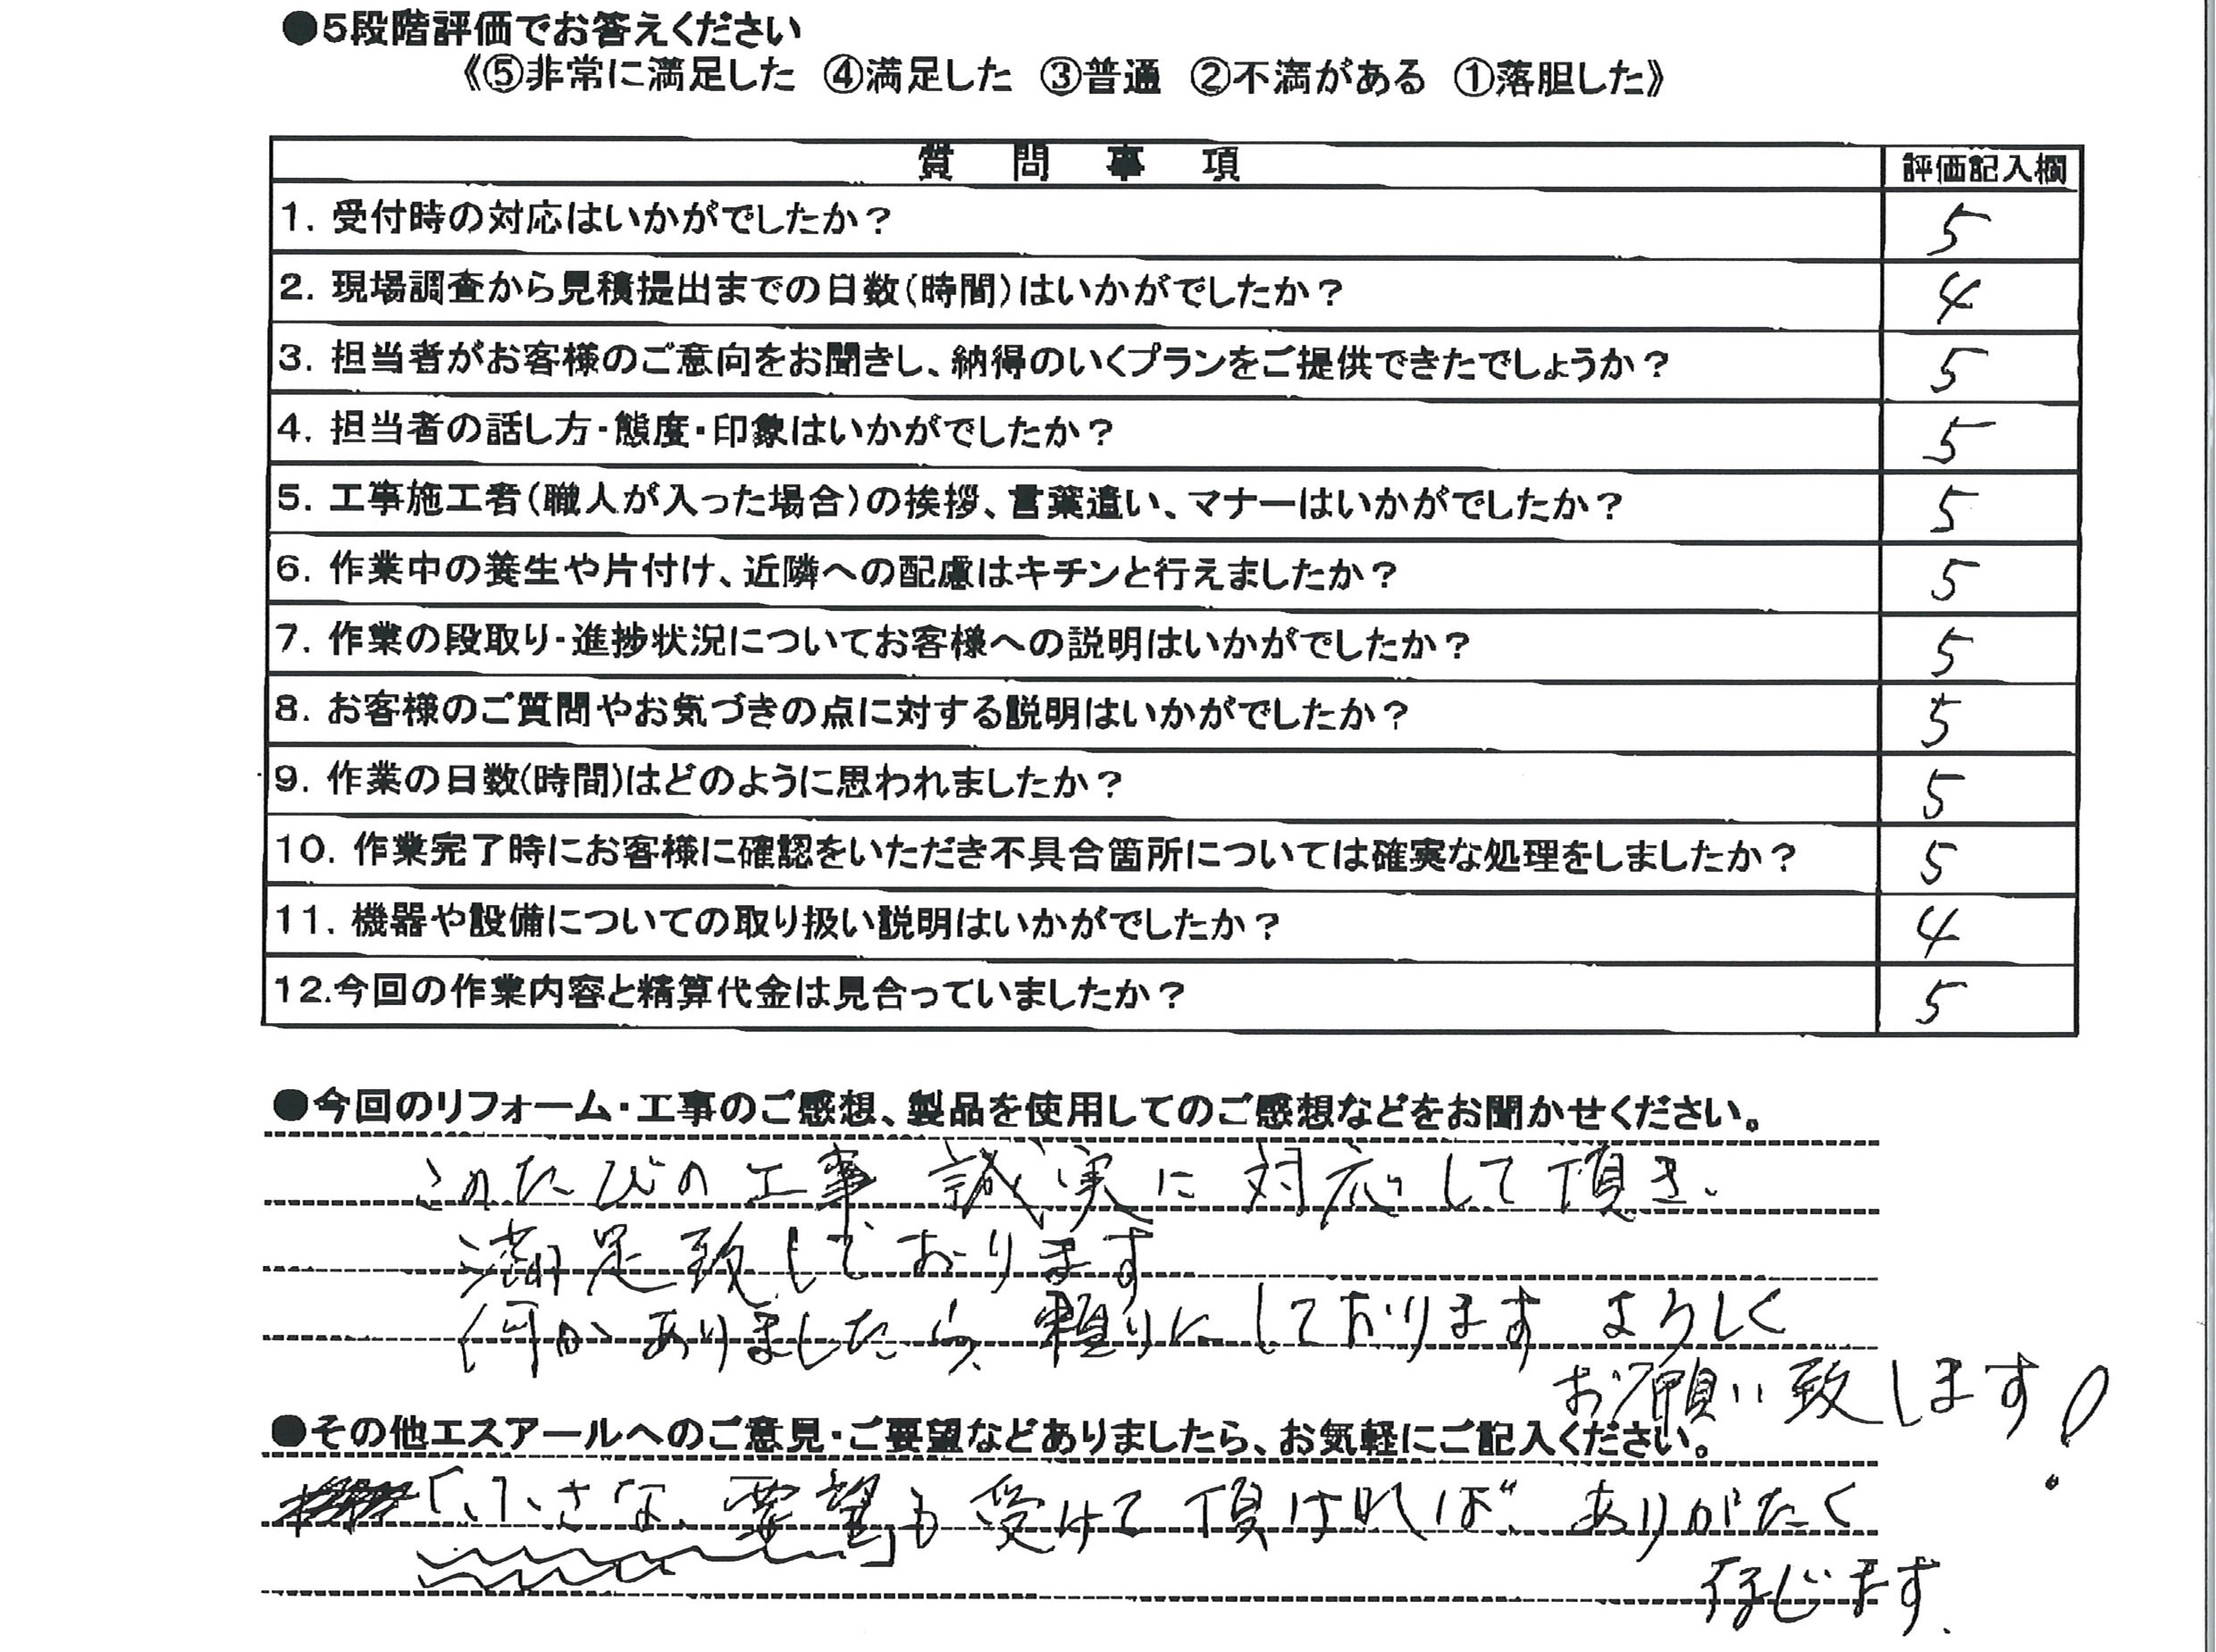 ●5段階評価でお答えください
《⑤非常に満足した ④満足した ③普通 ②不満がある ①落胆した》
質問事項 評価記入欄
1. 受付時の対応はいかがでしたか？ 5
2. 現場調査から見積提出までの日数(時間)はいかがでしたか？ 4
3. 担当者がお客様のご意向をお聞きし、納得のいくプランをご提供できたでしょうか？ 5
4. 担当者の話し方・態度・印象はいかがでしたか？ 5
5. 工事施工者(職人が入った場合)の挨拶、言葉遣い、マナーはいかがでしたか？ 5
6. 作業中の養生や片付け、近隣への配慮はキチンと行えましたか？ 5
7. 作業の段取り・進捗状況についてお客様への説明はいかがでしたか？ 5
8. お客様のご質問やお気づきの点に対する説明はいかがでしたか？ 5
9. 作業の日数(時間)はどのように思われましたか？ 5
10. 作業完了時にお客様に確認をいただき不具合箇所については確実な処理をしましたか？ 5
11. 機器や設備についての取り扱い説明はいかがでしたか？ 4
12.今回の作業内容と精算代金は見合っていましたか？ 5
●今回のリフォーム・工事のご感想、製品を使用してのご感想などをお聞かせください。
このたびの工事 誠実に対応して頂き、
満足致しております
何かありましたら、頼りにしております よろしく
お願い致します！
●その他エスアールへのご意見・ご要望などありましたら、お気軽にご記入ください。
「小さな要望」も受けて頂ければ ありがたく
存じます。